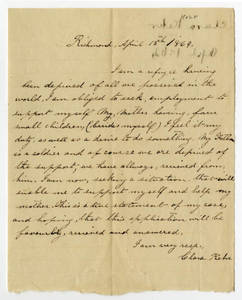 Richmond, April 18th/1864.
I am a refugee having
been deprived of all we possessed in the
world, I am obliged to seek, employment to
support myself My, Mother having, four
small children (besides myself) I feel it my
duty, as well as a desire to do something. My Father
is a soldier and of course we are deprived of
the support, we have always, received from
him. I am now seeking a situation, that will
enable me to support myself and help my
mother. This is a true statement of my case,
and hoping, that this application will be
favourbly, received and answered.
I am very resp.
Clara